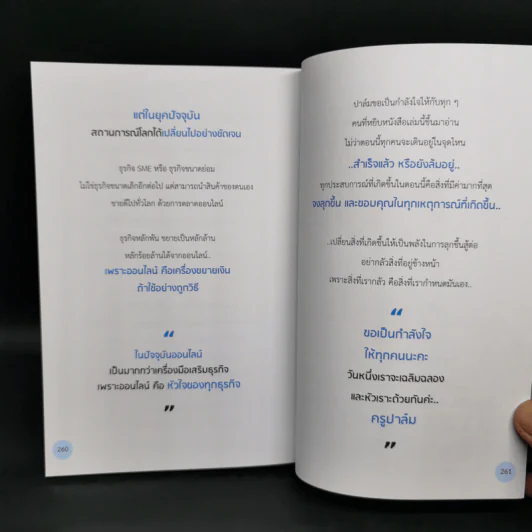 แต่ในยุคปัจจุบัน
สถานการณ์โลกได้เปลี่ยนไปอย่างชัดเจน
ธุรกิจ SME หรือ ธุรกิจขนาดย่อม
ไม่ใช่ธุรกิจขนาดเล็กอีกต่อไป แต่สามารถนำสินค้าของตนเอง
ขายดีไปทั่วโลก ด้วยการตลาดออนไลน์
ธุรกิจหลักพัน ขยายเป็นหลักล้าน
หลักร้อยล้านได้จากออนไลน์..
เพราะออนไลน์ คือเครื่องขยายเงิน
ถ้าใช้อย่างถูกวิธี
“
ในปัจจุบันออนไลน์
เป็นมากกว่าเครื่องมือเสริมธุรกิจ
เพราะออนไลน์ คือ หัวใจของทุกธุรกิจ
”
260
ปาล์มขอเป็นกำลังใจให้กับทุก ๆ
คนที่หยิบหนังสือเล่มนี้ขึ้นมาอ่าน
ไม่ว่าตอนนี้ทุกคนจะเดินอยู่ในจุดไหน
..สำเร็จแล้ว หรือยังล้มอยู่..
ทุกประสบการณ์ที่เกิดขึ้นในตอนนี้คือสิ่งที่มีค่ามากที่สุด
จงลุกขึ้น และขอบคุณในทุกเหตุการณ์ที่เกิดขึ้น..
..เปลี่ยนสิ่งที่เกิดขึ้นให้เป็นพลังในการลุกขึ้นสู้ต่อ
อย่ากลัวสิ่งที่อยู่ข้างหน้า
เพราะสิ่งที่เรากลัว คือสิ่งที่เรากำหนดมันเอง..
“
ขอเป็นกำลังใจ
ให้ทุกคนนะคะ
วันหนึ่งเราจะเฉลิมฉลอง
และหัวเราะด้วยกันค่ะ..
ครูปาล์ม
”
261